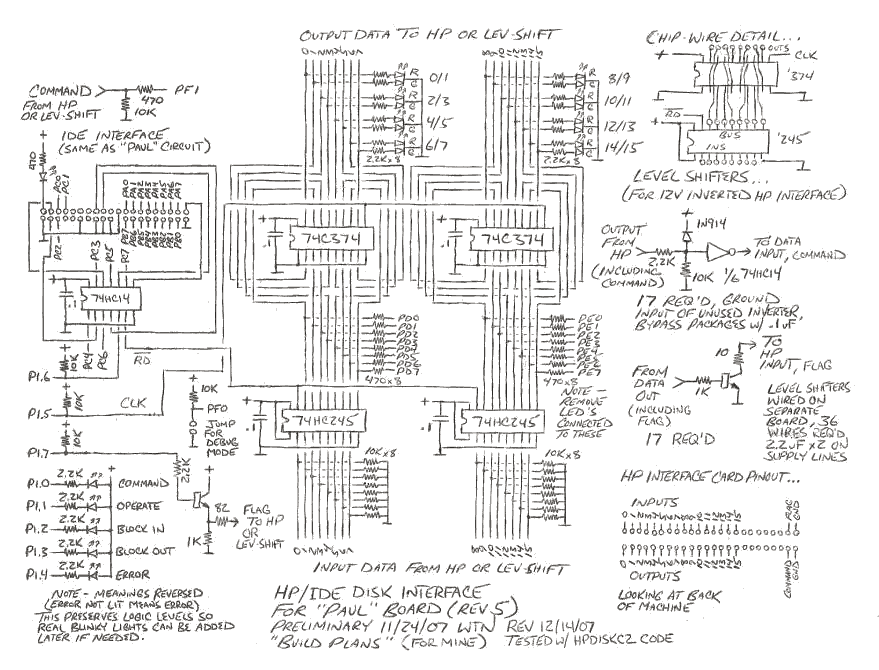 OUTPUT DATA TO HP OR LEV-SHIFT
0/1
2/3
4/5
6/7
2.2K x 8
8/9
10/11
12/13
14/15
2.2K x 8
CHIP-WIRE DETAIL...
OUTS
CLK
'374
RD
BUS
INS
'245
COMMAND
FROM HP
OR LEV-SHIFT
470
10K
PF1
IDE INTERFACE
(SAME AS "PAUL" CIRCUIT)
470
PC0
PC1
PA0
PA1
PA2
PA3
PA4
PA5
PA6
PA7
PC2
PC3
PC5
PB7
PB6
PB5
PB4
PB3
PB2
PB1
PB0
74HC14
.1
PC4
PC6
RD
74C374
.1
74C374
.1
LEVEL SHIFTERS...
(FOR 12V INVERTED HP INTERFACE)
OUTPUT
FROM
HP
(INCLUDING
COMMAND)
2.2K
1N914
10K
1/6 74HC14
TO DATA
INPUT, COMMAND
17 REQ'D, GROUND
INPUT OF UNUSED INVERTER,
BYPASS PACKAGES W/ .1uF
PD0
PD1
PD2
PD3
PD4
PD5
PD6
PD7
470 x 8
PE0
PE1
PE2
PE3
PE4
PE5
PE6
PE7
470 x 8
NOTE -
REMOVE
LED'S
CONNECTED
TO THESE
FROM
DATA
OUT
(INCLUDING
FLAG)
1K
10
TO
HP
INPUT, FLAG
17 REQ'D
LEVEL SHIFTERS
WIRED ON
SEPARATE
BOARD, 36
WIRES REQ'D
2.2uF x 2 ON
SUPPLY LINES
P1.6
10K
P1.5
10K
CLK
P1.7
10K
10K
PF0
JUMP
FOR
DEBUG
MODE
2.2K
74HC245
.1
74HC245
.1
10K x 8
10K x 8
P1.0
2.2K
COMMAND
P1.1
2.2K
OPERATE
P1.2
2.2K
BLOCK IN
P1.3
2.2K
BLOCK OUT
P1.4
2.2K
ERROR
82
1K
FLAG
TO HP
OR
LEV-SHIFT
INPUT DATA FROM HP OR LEV-SHIFT
HP INTERFACE CARD PINOUT...
INPUTS
FLAG
GND
OUTPUTS
COMMAND
GND
LOOKING AT BACK
OF MACHINE
NOTE - MEANINGS REVERSED
(ERROR NOT LIT MEANS ERROR)
THIS PRESERVES LOGIC LEVELS SO
REAL BLINKY LIGHTS CAN BE ADDED
LATER IF NEEDED.
HP/IDE DISK INTERFACE
FOR "PAUL" BOARD (REV 5)
PRELIMINARY 11/24/07 WTN REV 12/14/07
"BUILD PLANS" (FOR MINE) TESTED W/ HPDISKC2 CODE